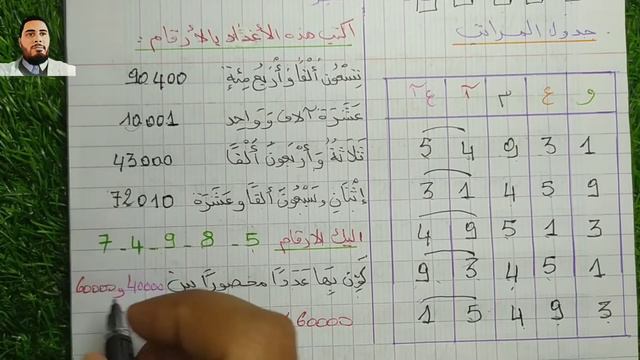 جدول المراتب
و ع م آ ع آ
5 4 9 3 1
3 1 4 5 9
4 9 5 1 3
9 3 4 5 1
1 5 4 9 3
اكتب هذه الأعداد بالأرقام :
تِسْعُونَ أَلْفًا وَ أَرْبَعُ مِئَةٍ 90400
عَشَرَةُ آلاف وَ وَاحِد 10001
ثَلَاثَةُ وَ أَرْبَعُونَ أَلْفًا 43000
إِثْنَانِ وَ سَبْعُونَ أَلْفًا وَ عَشَرَة 72010
إليك الارقام 5 - 8 - 9 - 4 - 7
كَوِّن بِهَا عَدَدًا محصورًا بين 40000 و 60000
60000